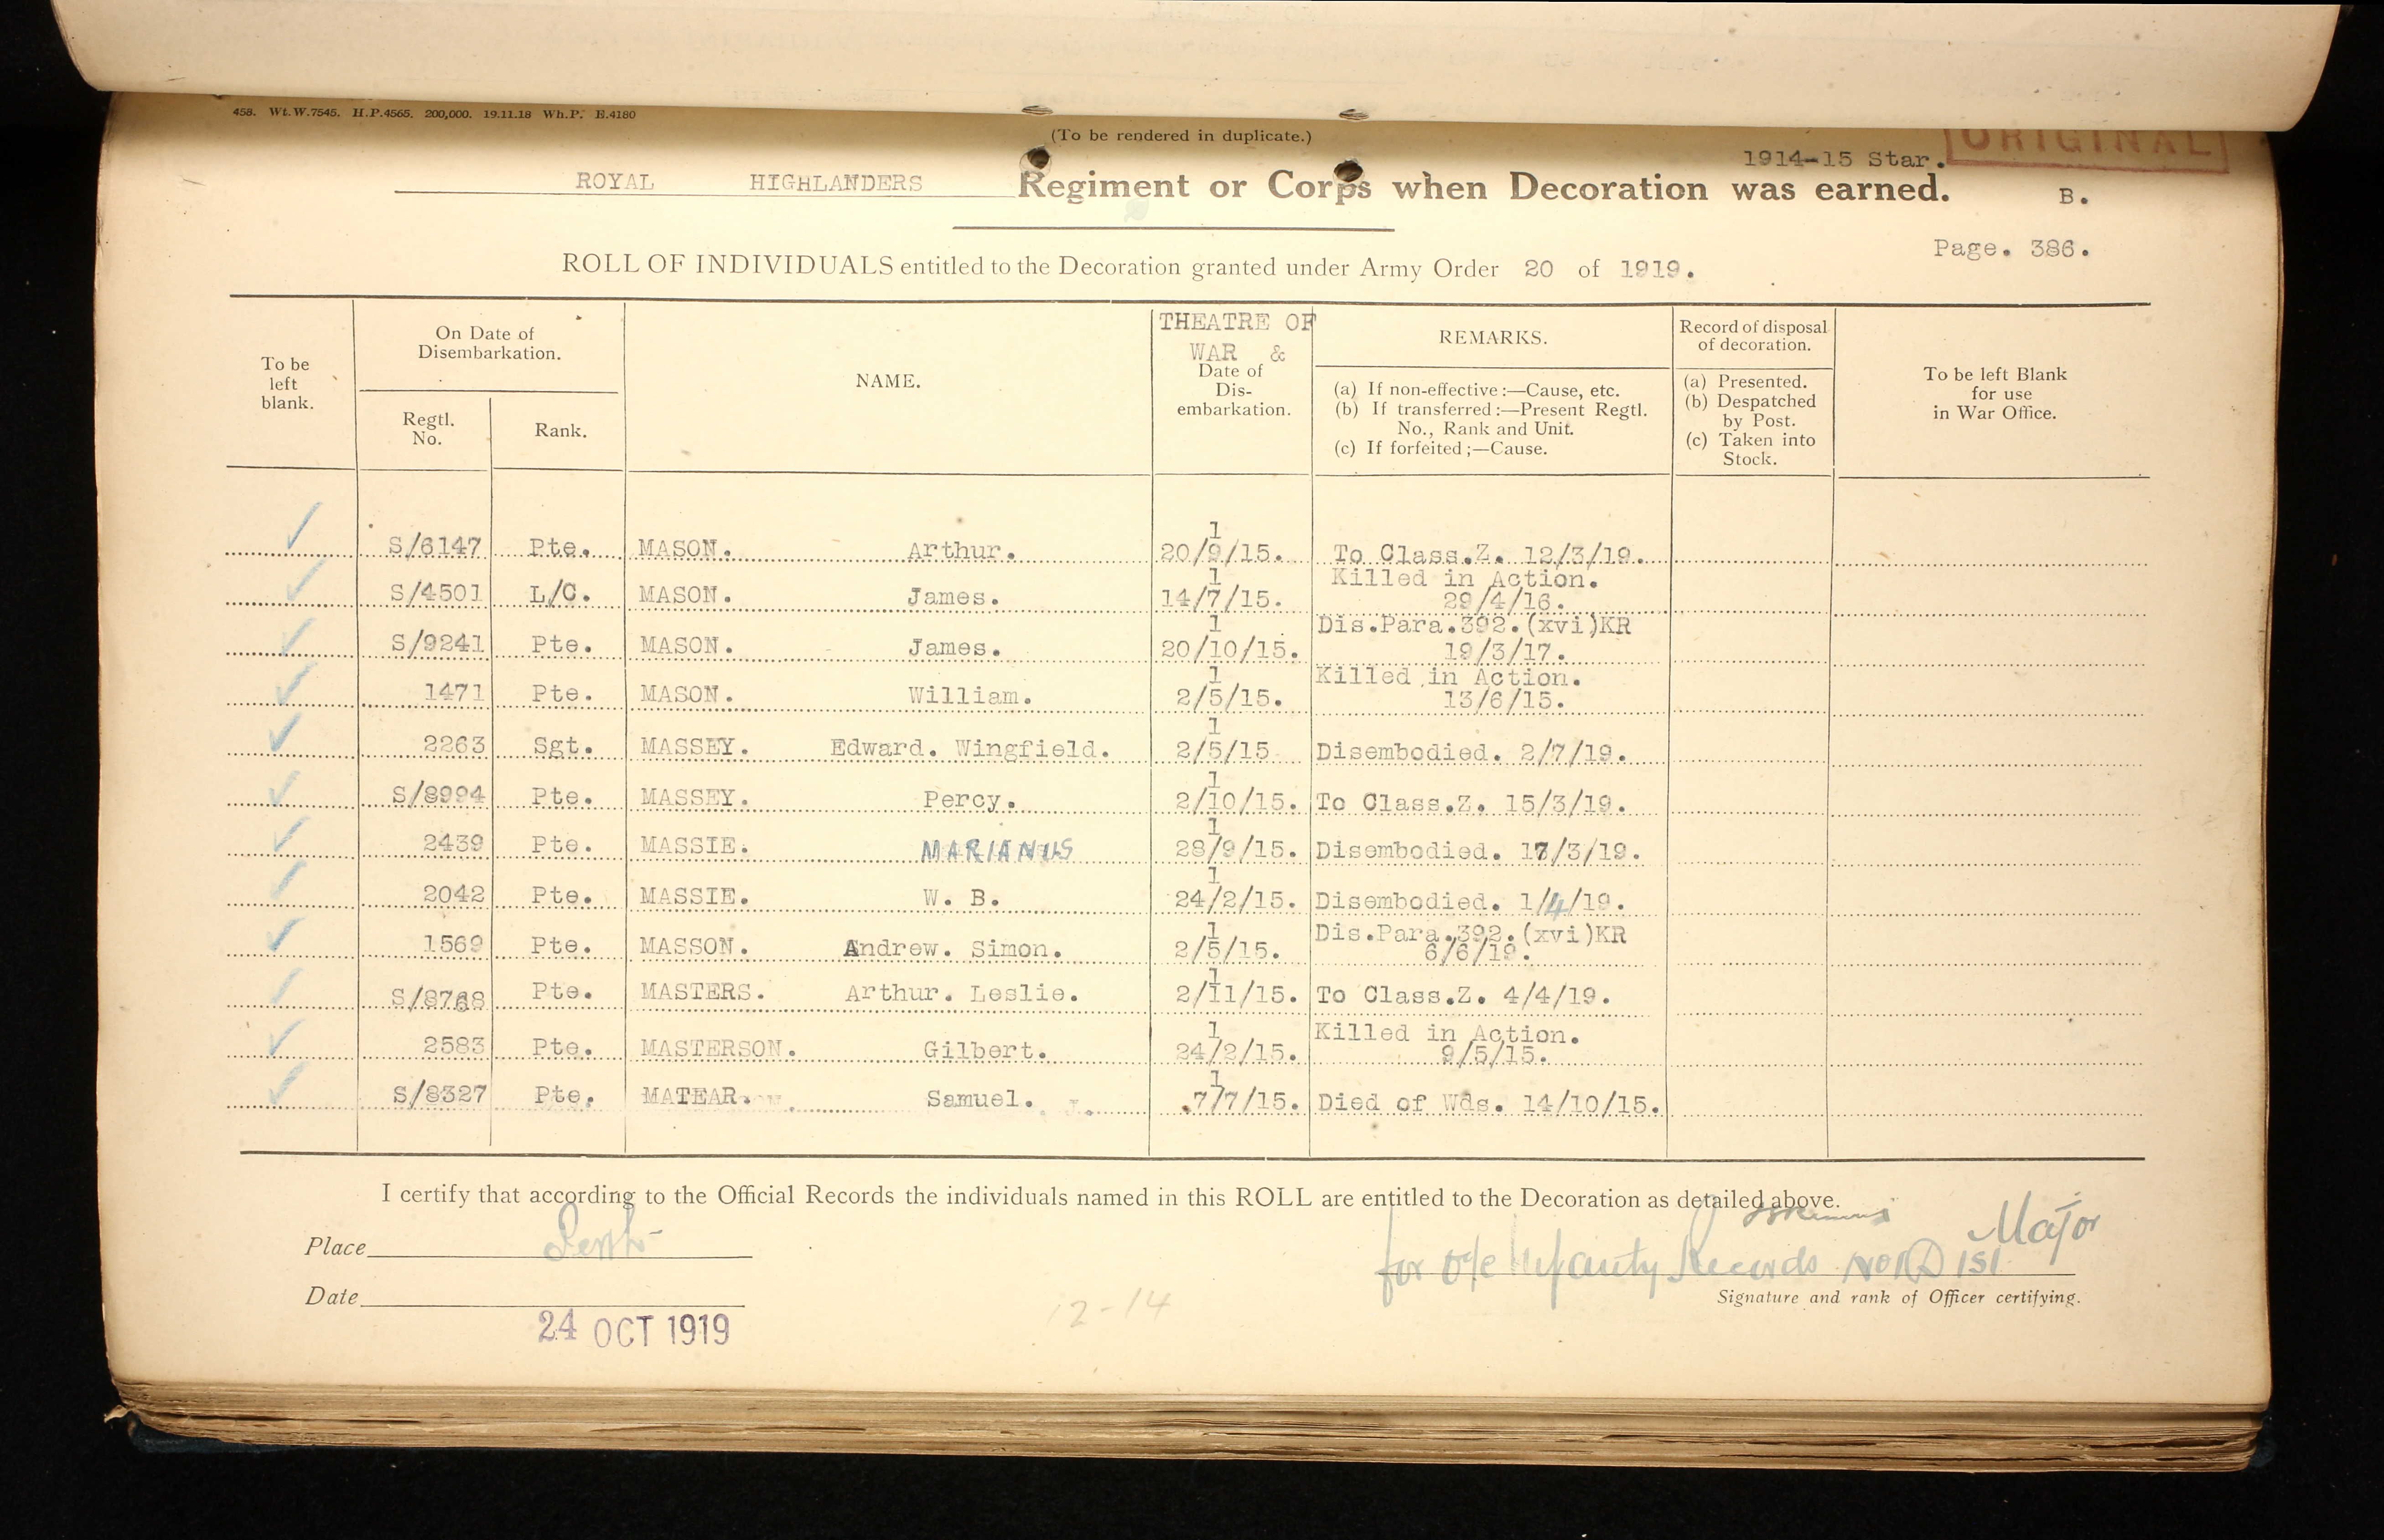 458. Wt.W.7545. H.P.4565. 200,000. 19.11.18 Wh.P. E.4180
(To be rendered in duplicate.)
ORIGINAL
1914-15 Star.
ROYAL HIGHLANDERS Regiment or Corps when Decoration was earned.
B.
Page. 386.
ROLL OF INDIVIDUALS entitled to the Decoration granted under Army Order 20 of 1919.
To be left blank.
On Date of Disembarkation.
Regtl. No.
Rank.
NAME.
THEATRE OF WAR & Date of Dis-embarkation.
REMARKS.
(a) If non-effective:—Cause, etc.
(b) If transferred:—Present Regtl. No., Rank and Unit.
(c) If forfeited;—Cause.
Record of disposal of decoration.
(a) Presented.
(b) Despatched by Post.
(c) Taken into Stock.
To be left Blank for use in War Office.
S/6147 Pte. MASON. Arthur. 1 20/9/15. To Class.Z. 12/3/19.
S/4501 L/C. MASON. James. 1 14/7/15. Killed in Action. 29/4/16.
S/9241 Pte. MASON. James. 1 20/10/15. Dis.Para.392.(xvi)KR 19/3/17.
1471 Pte. MASON. William. 1 2/5/15. Killed in Action. 13/6/15.
2263 Sgt. MASSEY. Edward. Wingfield. 1 2/5/15 Disembodied. 2/7/19.
S/8994 Pte. MASSEY. Percy. 1 2/10/15. To Class.Z. 15/3/19.
2439 Pte. MASSIE. MARIANUS 1 28/9/15. Disembodied. 17/3/19.
2042 Pte. MASSIE. W. B. 1 24/2/15. Disembodied. 1/4/19.
1569 Pte. MASSON. Andrew. Simon. 1 2/5/15. Dis.Para.392.(xvi)KR 6/6/19.
S/8768 Pte. MASTERS. Arthur. Leslie. 1 2/11/15. To Class.Z. 4/4/19.
2583 Pte. MASTERSON. Gilbert. 1 24/2/15. Killed in Action. 9/5/15.
S/8327 Pte. MATEAR. Samuel. 1 7/7/15. Died of Wds. 14/10/15.
I certify that according to the Official Records the individuals named in this ROLL are entitled to the Decoration as detailed above.
Place Perth
Major
for O i/c Infantry Records No 1 D ISI
Date
24 OCT 1919
12-14
Signature and rank of Officer certifying.